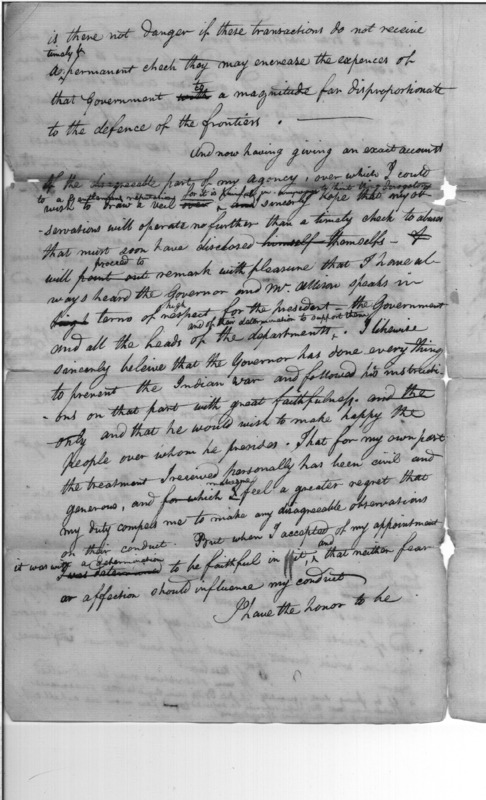 is there not danger if these transactions do not receive
timely &
a permanent check they may encrease the expences of
that Government with to a magnitude far disproportionate
to the defence of the frontiers. —
And now having giving an exact account
of the disagreeable part of my agency, over which I could
wish to draw a veil over, and sincerly hope that my ob-
-servations will operate no further than a timely check to abuses
that must soon have disclosed himself themselfs - I
proceed to
will point out remark with pleasure that I have al-
ways heard the Governor and Mr. Allison speaks in
high
terms of respect for the president - the Government
and of their determination to support them
and all the heads of the departments. I likewise
sincerly beleive that the Governor has done every thing
to prevent the Indian war and followed his instructi-
-ons on that part with great faithfulness. and the
only and that he would wish to make happy the
people over whom he presides. That for my own part
the treatment I received personally has been civil and
generous, and for which I feel a greater regret that
my duty compels me to make any disagreeable observations
on their conduct. But when I accepted of my appointment
it was with a determination
I was determined to be faithful in it, and that neither fear
or affection should influence my conduct
I have the honor to be